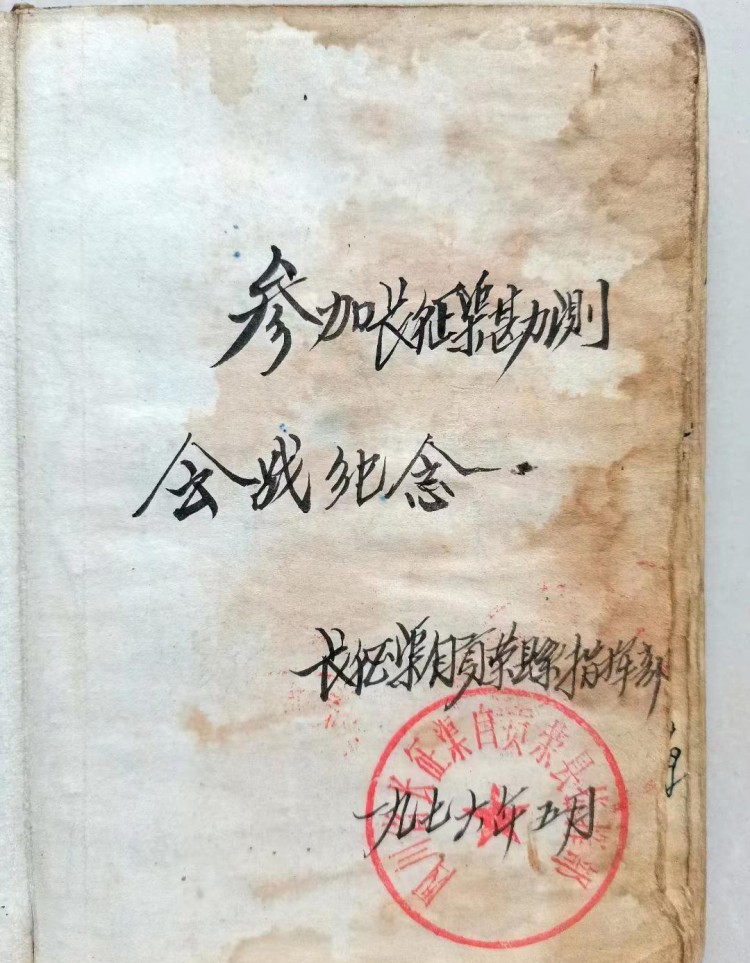 参加长征渠勘测
会战纪念.
长征渠自贡荣县指挥部
一九七六年五月
四川省长征渠自贡荣县指挥部